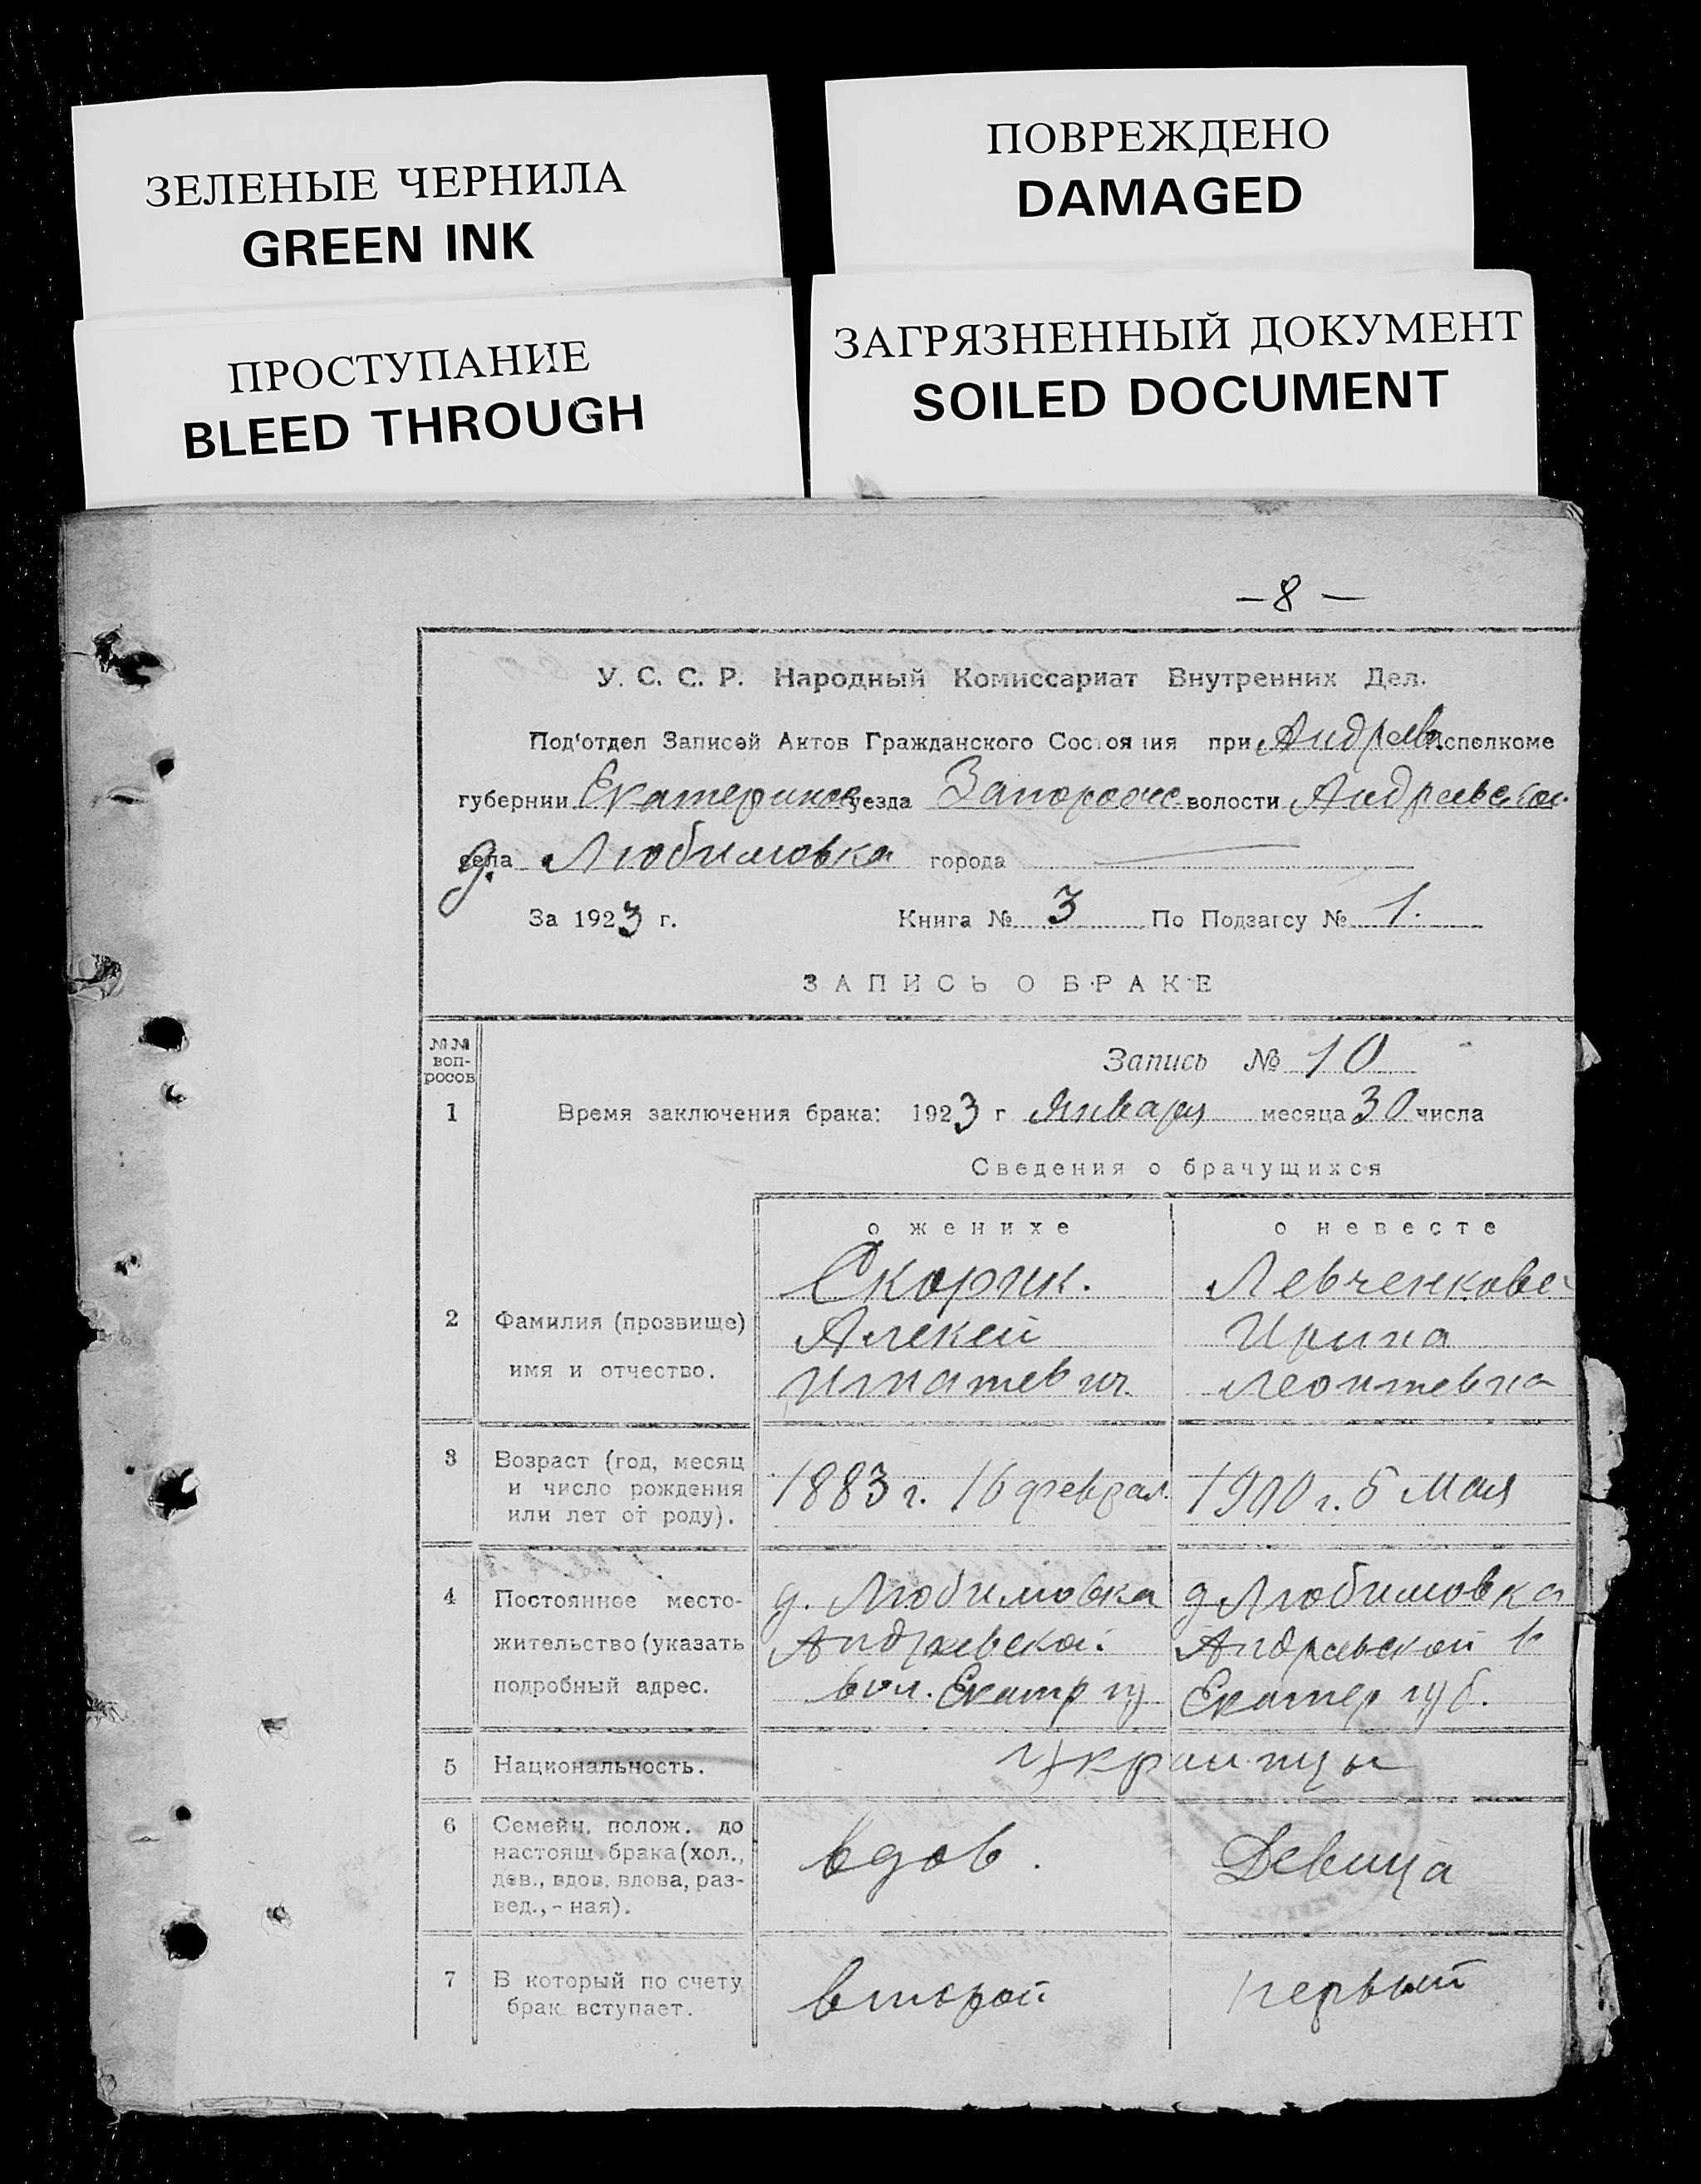 ЗЕЛЕНЫЕ ЧЕРНИЛА
GREEN INK
ПОВРЕЖДЕНО
DAMAGED
ПРОСТУПАНИЕ
BLEED THROUGH
ЗАГРЯЗНЕННЫЙ ДОКУМЕНТ
SOILED DOCUMENT
— 8 —
У. С. С. Р. Народный Комиссариат Внутренних Дел.
Под'отдел Записей Актов Гражданского Состояния при Андреев Исполкоме
губернии Екатеринов уезда Запорожс волости Андреевской
села д. Любимовка города —
За 1923 г. Книга № 3 По Подзагсу № 1.
ЗАПИСЬ О БРАКЕ
№№ воп-росов
Запись № 10
1 Время заключения брака: 1923 г Января месяца 30 числа
Сведения о брачущихся
о женихе о невесте
Скорик. Левченкова
2 Фамилия (прозвище) Алексей Ирина
имя и отчество. Игнатевич Леонтевна
3 Возраст (год, месяц
и число рождения 1883 г. 16 феврал. 1900 г. 5 Мая
или лет от роду).
4 Постоянное место- д. Любимовка д Любимовка
жительство (указать Андреевской Андреевской в
подробный адрес. вол. Екатер гу Екатер губ.
5 Национальность. Украинцы
6 Семейн. полож. до
настоящ. брака (хол., вдов. Девица
дев., вдов. вдова, раз-
вед., - ная).
7 В который по счету второй первый
брак вступает.